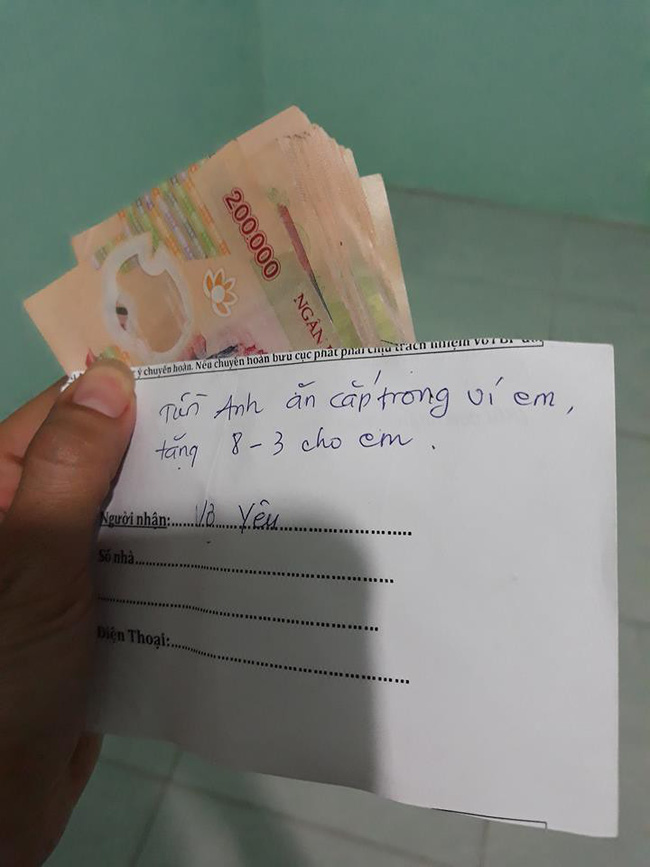 200.000
NGÀN
ý chuyển hoàn. Nếu chuyển hoàn bưu cục phát phải chịu trách nhiệm với BP
Tiền Anh ăn cắp trong ví em,
tặng 8-3 cho em.
Người nhận: Vợ Yêu
Số nhà
Điện Thoại: